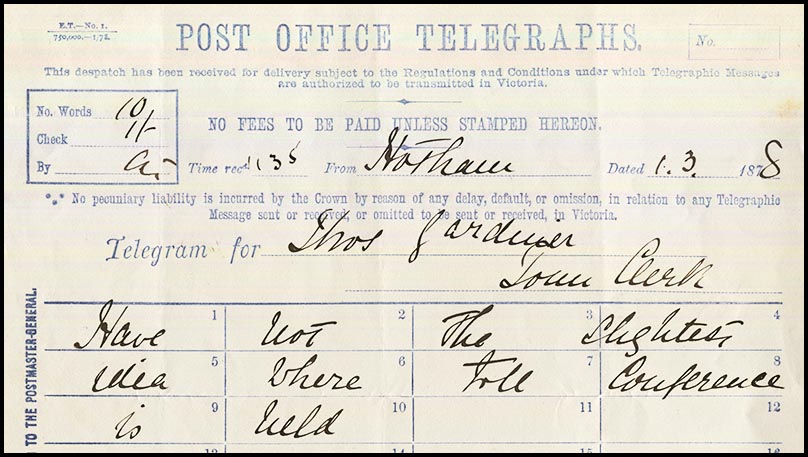 E.T.—No. 1.
750,000.—1,78.
POST OFFICE TELEGRAPHS.
No.
This despatch has been received for delivery subject to the Regulations and Conditions under which Telegraphic Messages
are authorized to be transmitted in Victoria.
No. Words 10/
Check 11
By
NO FEES TO BE PAID UNLESS STAMPED HEREON.
Time recd From Hotham Dated 1.3. 1878
No pecuniary liability is incurred by the Crown by reason of any delay, default, or omission, in relation to any Telegraphic
Message sent or received, or omitted to be sent or received, in Victoria.
Telegram for Thos Gardiner
Town Clerk
N TO THE POSTMASTER-GENERAL.
Have 1 not 2 the 3 slightest 4
idea 5 where 6 Toll 7 Conference 8
is 9 held 10 11 12